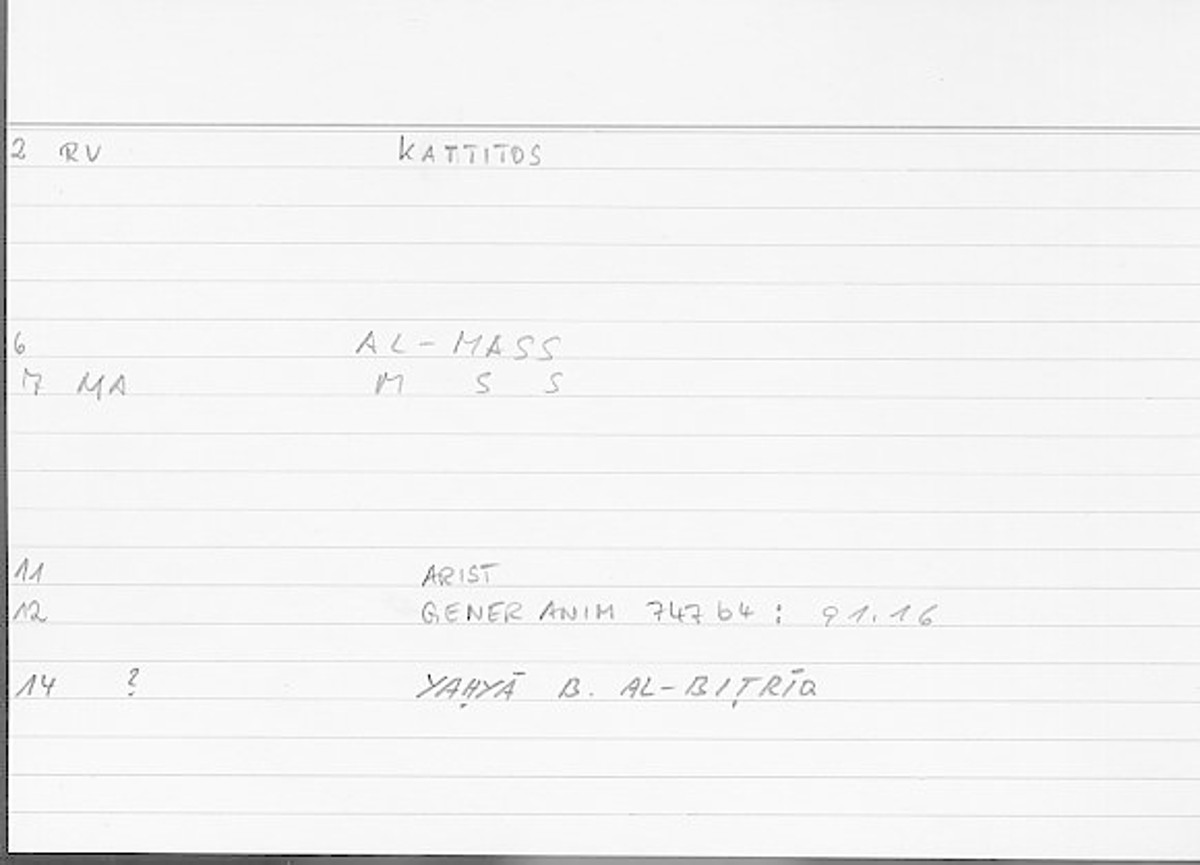 2 RV KATTITOS
6 AL-MASS
7 MA M S S
11 ARIST
12 GENER ANIM 747 b4 : 91.16
14 ? YAḤYĀ B. AL-BIṬRĪQ